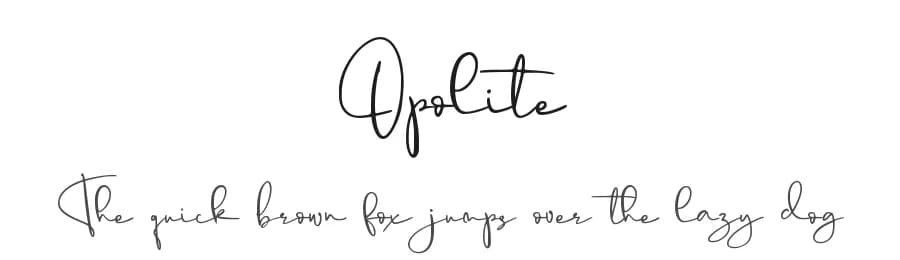 Opolite
The quick brown fox jumps over the lazy dog